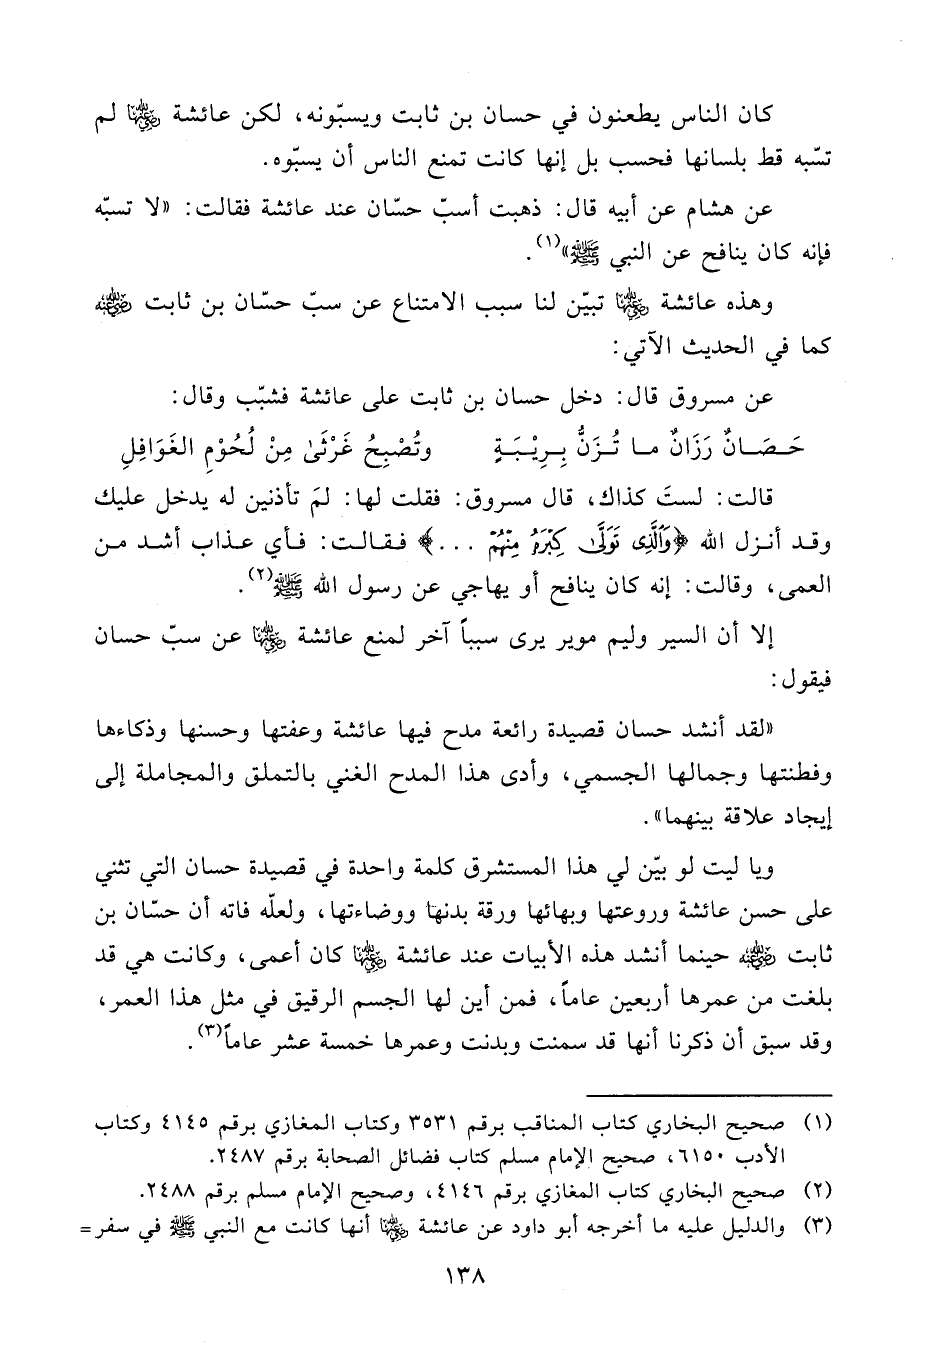 كان الناس يطعنون في حسان بن ثابت ويسبّونه، لكن عائشة رضي الله عنها لم
تسّبه قط بلسانها فحسب بل إنها كانت تمنع الناس أن يسبّوه.
عن هشام عن أبيه قال: ذهبت أسبّ حسّان عند عائشة فقالت: «لا تسبّه
فإنه كان ينافح عن النبي ﷺ»(١).
وهذه عائشة رضي الله عنها تبيّن لنا سبب الامتناع عن سبّ حسّان بن ثابت رضي الله عنه
كما في الحديث الآتي:
عن مسروق قال: دخل حسان بن ثابت على عائشة فشبّب وقال:
حَصَانٌ رَزَانٌ ما تُزَنُّ بِرِيْبَةٍ وتُصْبِحُ غَرْثَىٰ مِنْ لُحُوْمِ الغَوَافِلِ
قالت: لستَ كذاك، قال مسروق: فقلت لها: لمَ تأذنين له يدخل عليك
وقد أنزل الله ﴿وَٱلَّذِى تَوَلَّىٰ كِبْرَهُۥ مِنْهُمْ ...﴾ فقالت: فأي عذاب أشد من
العمى، وقالت: إنه كان ينافح أو يهاجي عن رسول الله ﷺ(٢).
إلا أن السير وليم موير يرى سبباً آخر لمنع عائشة رضي الله عنها عن سبّ حسان
فيقول:
«لقد أنشد حسان قصيدة رائعة مدح فيها عائشة وعفتها وحسنها وذكاءها
وفطنتها وجمالها الجسمي، وأدى هذا المدح الغني بالتملق والمجاملة إلى
إيجاد علاقة بينهما».
ويا ليت لو بيّن لي هذا المستشرق كلمة واحدة في قصيدة حسان التي تثني
على حسن عائشة وروعتها وبهائها ورقة بدنها ووضاءتها، ولعلّه فاته أن حسّان بن
ثابت رضي الله عنه حينما أنشد هذه الأبيات عند عائشة رضي الله عنها كان أعمى، وكانت هي قد
بلغت من عمرها أربعين عاماً، فمن أين لها الجسم الرقيق في مثل هذا العمر،
وقد سبق أن ذكرنا أنها قد سمنت وبدنت وعمرها خمسة عشر عاماً(٣).
(١) صحيح البخاري كتاب المناقب برقم ٣٥٣١ وكتاب المغازي برقم ٤١٤٥ وكتاب
الأدب ٦١٥٠، صحيح الإمام مسلم كتاب فضائل الصحابة برقم ٢٤٨٧.
(٢) صحيح البخاري كتاب المغازي برقم ٤١٤٦، وصحيح الإمام مسلم برقم ٢٤٨٨.
(٣) والدليل عليه ما أخرجه أبو داود عن عائشة رضي الله عنها أنها كانت مع النبي ﷺ في سفر =
١٣٨